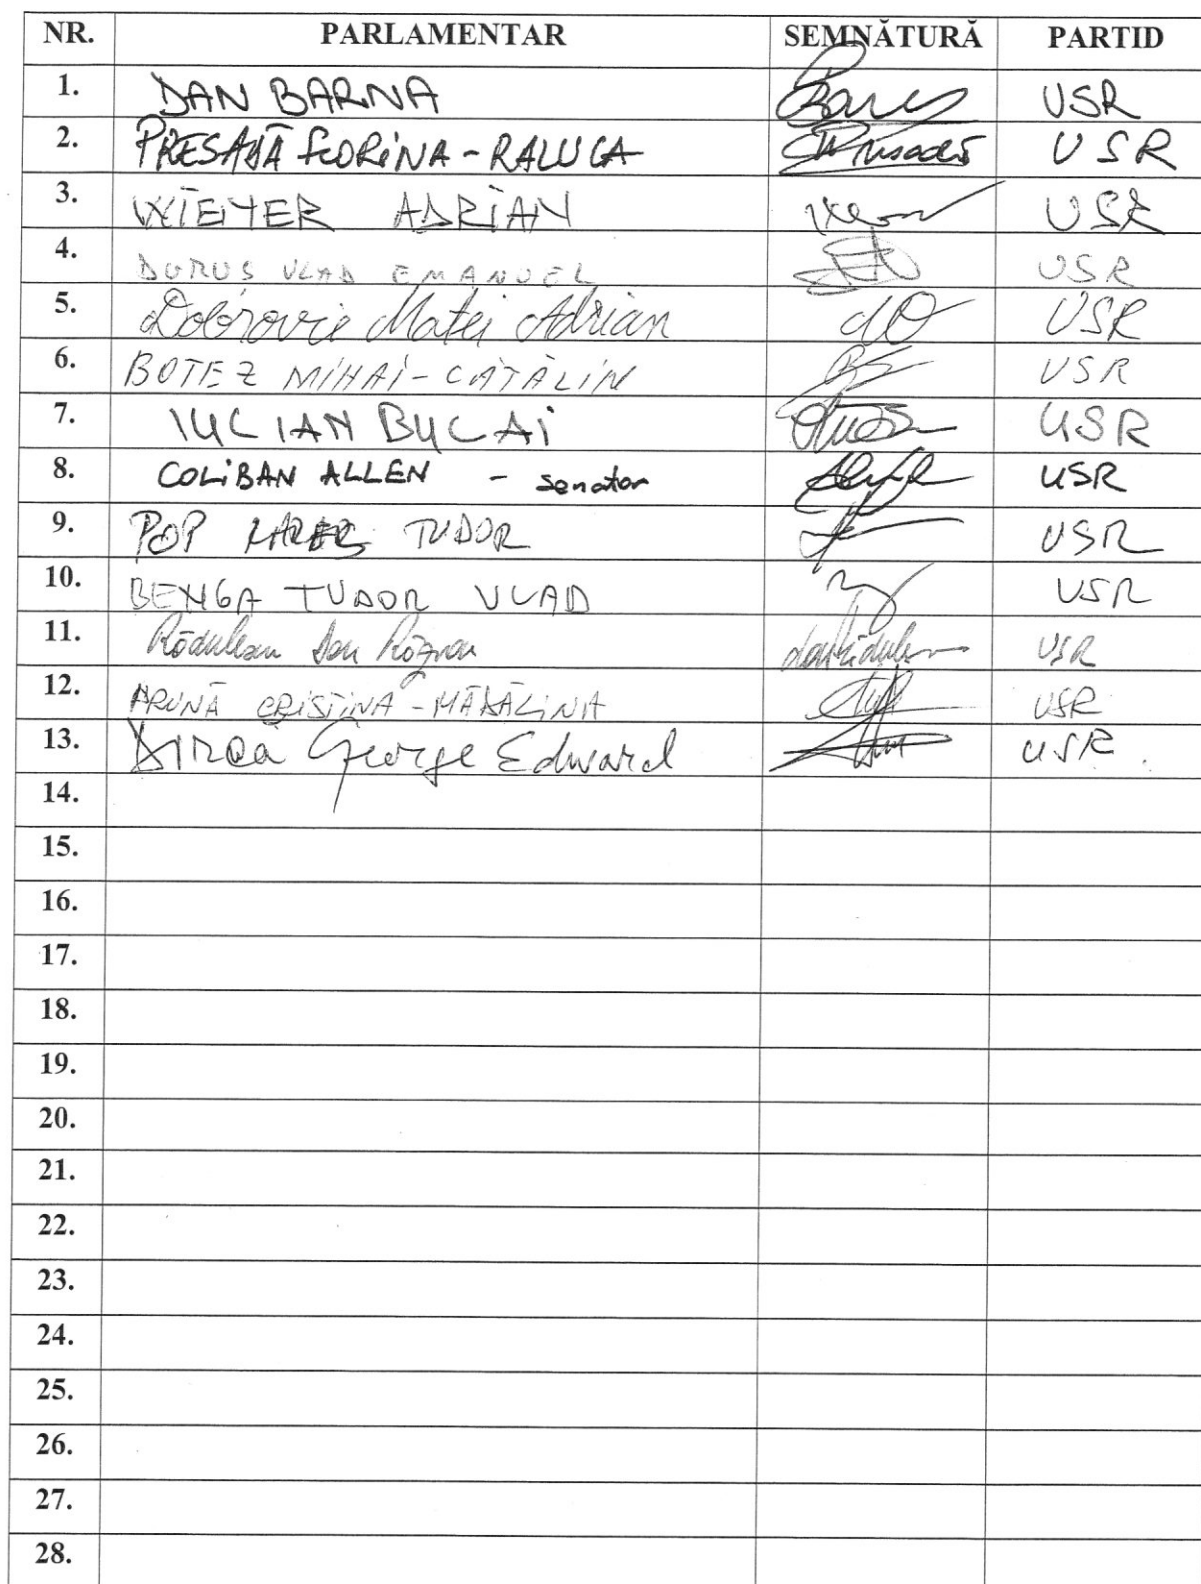 NR. PARLAMENTAR SEMNĂTURĂ PARTID
1. DAN BARNA USR
2. PRESADĂ FLORINA-RALUCA USR
3. WIENER ADRIAN USR
4. DURUS VLAD EMANUEL USR
5. Dobrovie Matei Adrian USR
6. BOTEZ MIHAI-CĂTĂLIN USR
7. IULIAN BULAI USR
8. COLIBAN ALLEN - senator USR
9. POP RAREȘ TUDOR USR
10. BENGA TUDOR VLAD USR
11. Rădulescu Dan Răzvan USR
12. PRUNĂ CRISTINA-MĂDĂLINA USR
13. DIRCĂ George Edward USR
14.
15.
16.
17.
18.
19.
20.
21.
22.
23.
24.
25.
26.
27.
28.